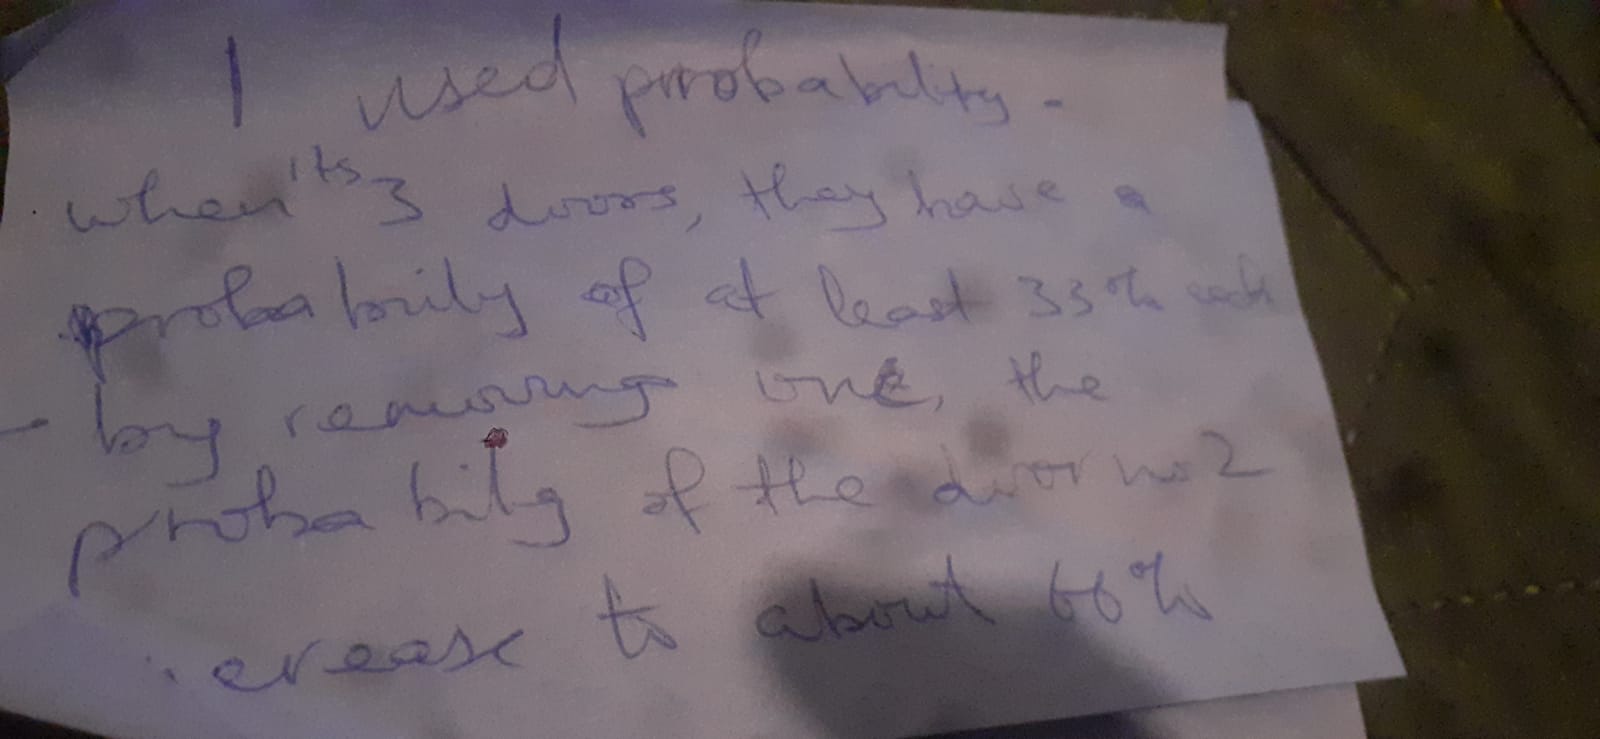 I used probability.
when its 3 doors, they have a
probability of at least 33% each
- by removing one, the
probability of the door no 2
increase to about 66%